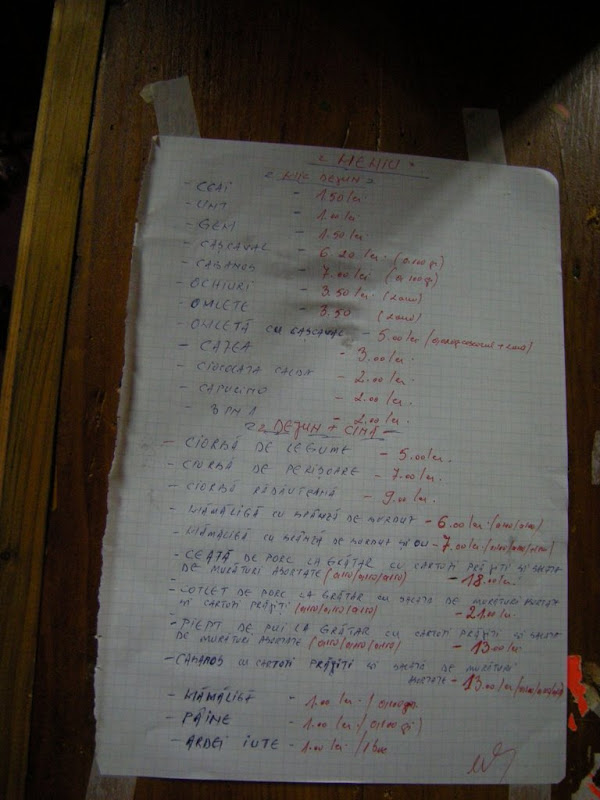 = MENIU =
= MIC DEJUN =
- CEAI - 1.50 lei
- UNT - 1.00 lei
- GEM - 1.50 lei
- CAȘCAVAL - 6.20 lei (0,100g)
- CABANOS - 7.00 lei (0,100g)
- OCHIURI - 3.50 lei (2 ouă)
- OMLETE - 3.50 (2 ouă)
- OMLETĂ CU CAȘCAVAL - 5.00 lei
- CAFEA - 3.00 lei
- CIOCOLATA CALDĂ - 2.00 lei
- CAPUCINO - 2.00 lei
- 3 ÎN 1 - 2.00 lei
= DEJUN + CINA =
- CIORBĂ DE LEGUME - 5.00 lei
- CIORBĂ DE PERIȘOARE - 7.00 lei
- CIORBĂ RĂDĂUȚEANĂ - 9.00 lei
- MĂMĂLIGĂ CU BRÂNZĂ DE BURDUF - 6.00 lei
- MĂMĂLIGĂ CU BRÂNZĂ DE BURDUF ȘI OU - 7.00 lei
- CEAFĂ DE PORC LA GRĂTAR CU CARTOFI PRĂJIȚI ȘI SALATĂ
DE MURĂTURI ASORTATE - 18.00 lei
- COTLET DE PORC LA GRĂTAR CU SALATĂ DE MURĂTURI ASORTATE
ȘI CARTOFI PRĂJIȚI - 21.00 lei
- PIEPT DE PUI LA GRĂTAR CU CARTOFI PRĂJIȚI ȘI SALATĂ
DE MURĂTURI ASORTATE - 13.00 lei
- CABANOS CU CARTOFI PRĂJIȚI ȘI SALATĂ DE MURĂTURI
ASORTATE - 13.00 lei
- MĂMĂLIGĂ - 1.00 lei / 0,100g
- PÂINE - 1.00 lei / 0,100g)
- ARDEI IUTE - 1.00 lei / 1 buc